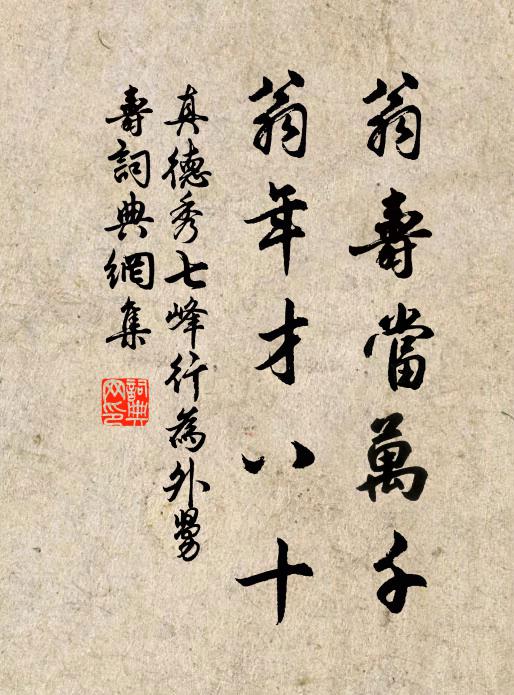 翁壽當萬千
翁年才八十
真德秀七峰行為外舅
壽詞典網集
詞典網印